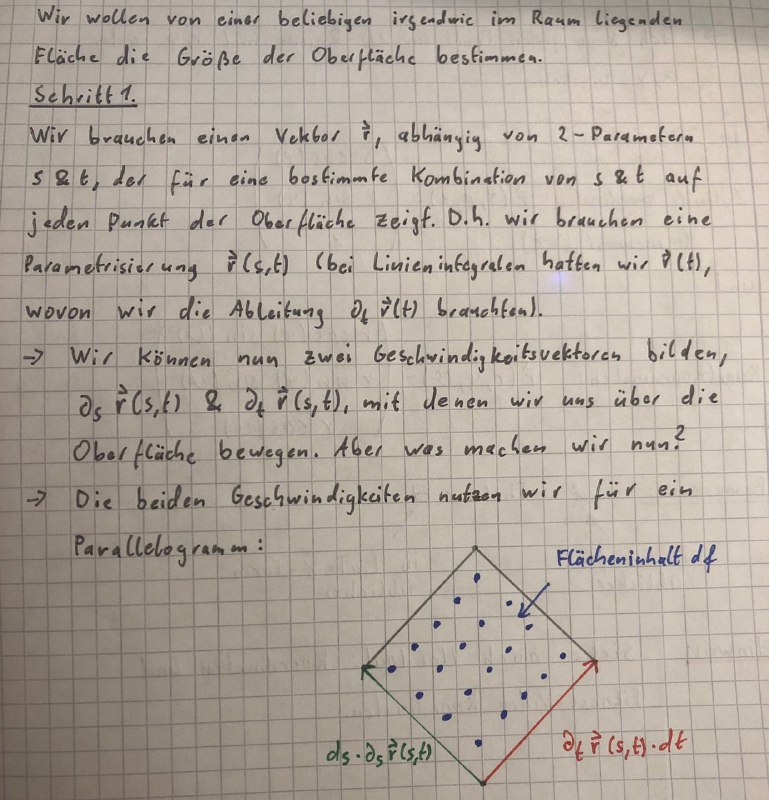 Wir wollen von einer beliebigen irgendwie im Raum liegenden
Fläche die Größe der Oberfläche bestimmen.
Schritt 1.
Wir brauchen einen Vektor r⃗, abhängig von 2-Parametern
s & t, der für eine bestimmte Kombination von s & t auf
jeden Punkt der Oberfläche zeigt. D.h. wir brauchen eine
Parametrisierung r⃗(s,t) (bei Linienintegralen hatten wir r⃗(t),
wovon wir die Ableitung ∂ₜ r⃗(t) brauchten).
→ Wir können nun zwei Geschwindigkeitsvektoren bilden,
∂ₛ r⃗(s,t) & ∂ₜ r⃗(s,t), mit denen wir uns über die
Oberfläche bewegen. Aber was machen wir nun?
→ Die beiden Geschwindigkeiten nutzen wir für ein
Parallelogramm:
Flächeninhalt df
ds · ∂ₛ r⃗(s,t)
∂ₜ r⃗(s,t) · dt